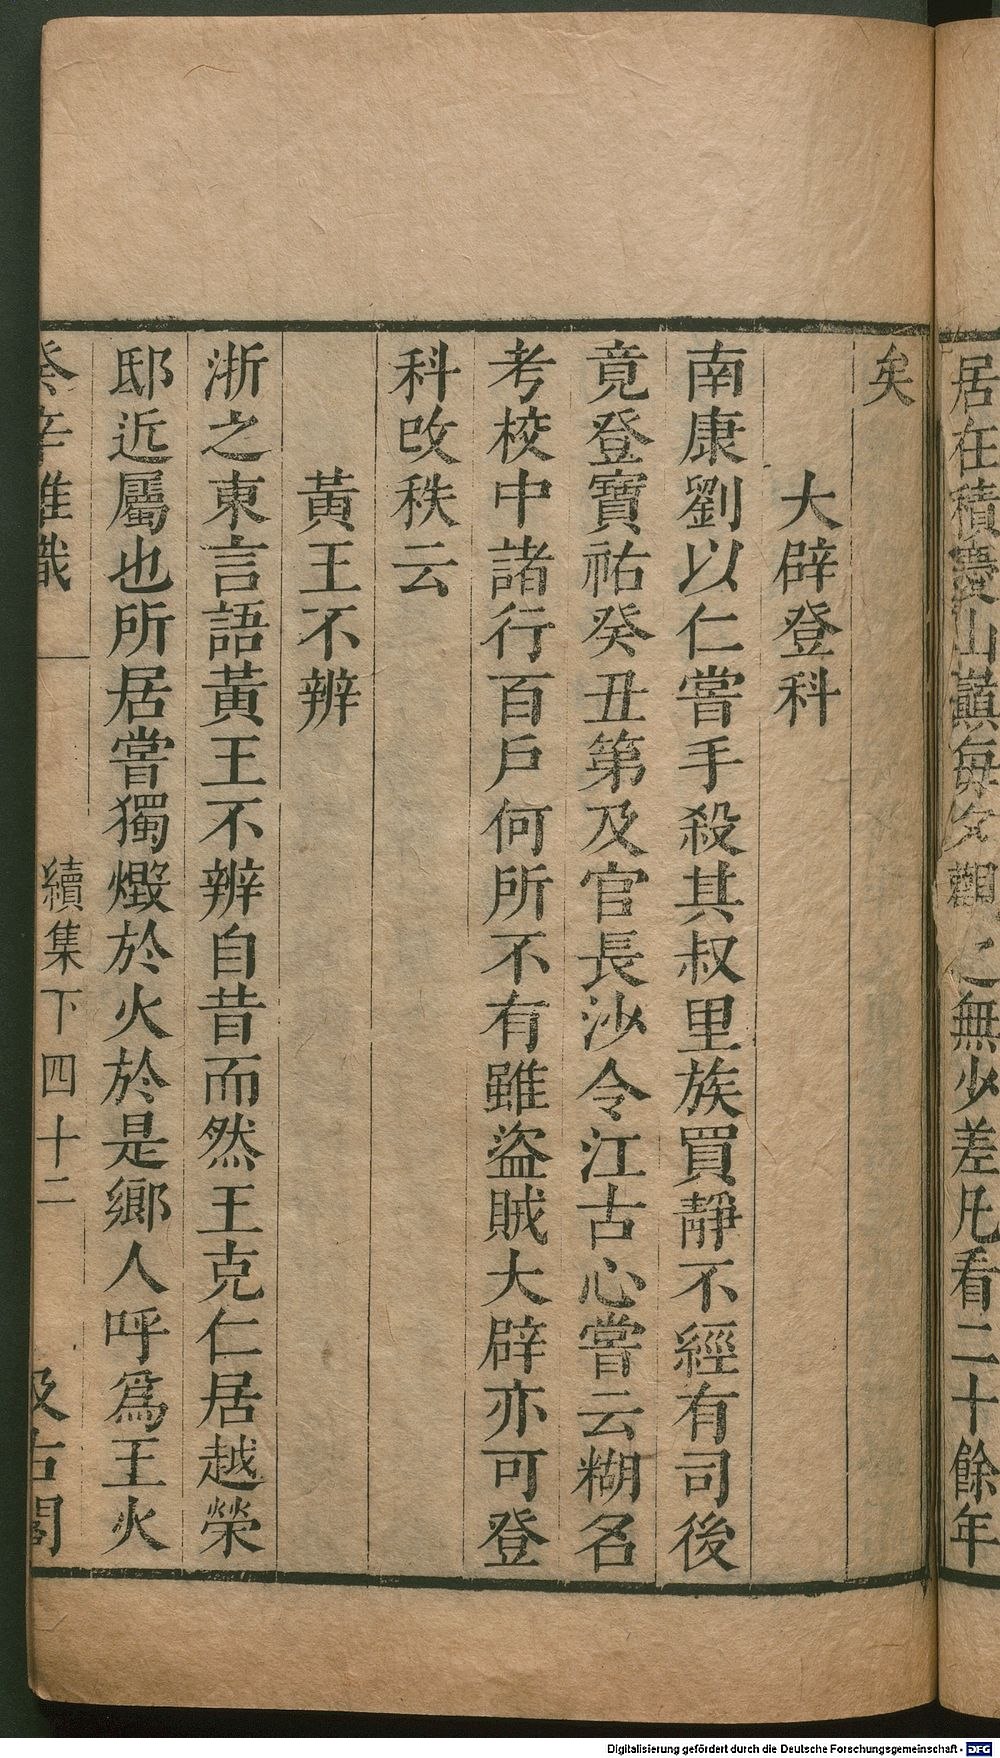 居在積慶山巔每夕觀之無少差凡看二十餘年
矣
大辟登科
南康劉以仁嘗手殺其叔里族買靜不經有司後
竟登寶祐癸丑第及官長沙令江古心嘗云糊名
考校中諸行百戶何所不有雖盜賊大辟亦可登
科改秩云
黃王不辨
浙之東言語黃王不辨自昔而然王克仁居越榮
邸近屬也所居嘗獨燬於火於是鄉人呼爲王火
癸辛雜識 續集下 四十二 汲古閣
Digitalisierung gefördert durch die Deutsche Forschungsgemeinschaft - DFG